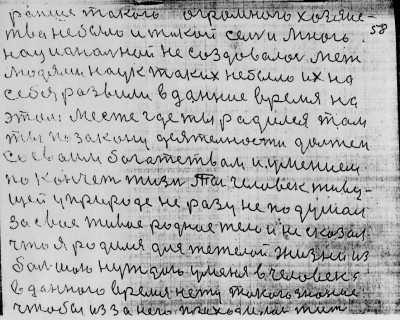 раньше такого огромного хозяйс-
тва небыло и такой семи много
националной не создовалос меж 58
людями наук таких небыло их на
себя развили в данное время на
этом месте где ты радился там
ты по закону деятелности должен
со своим богатством и умением
по кончет жизн Ты человек живу-
щей у природе не разу не подумал
за свае живое родное тело и не сказал
что я родился для тяжелой жизни из
болшою нуждою у меня в человека
в данного время нету такого знание
чтобы из за него приходили жит